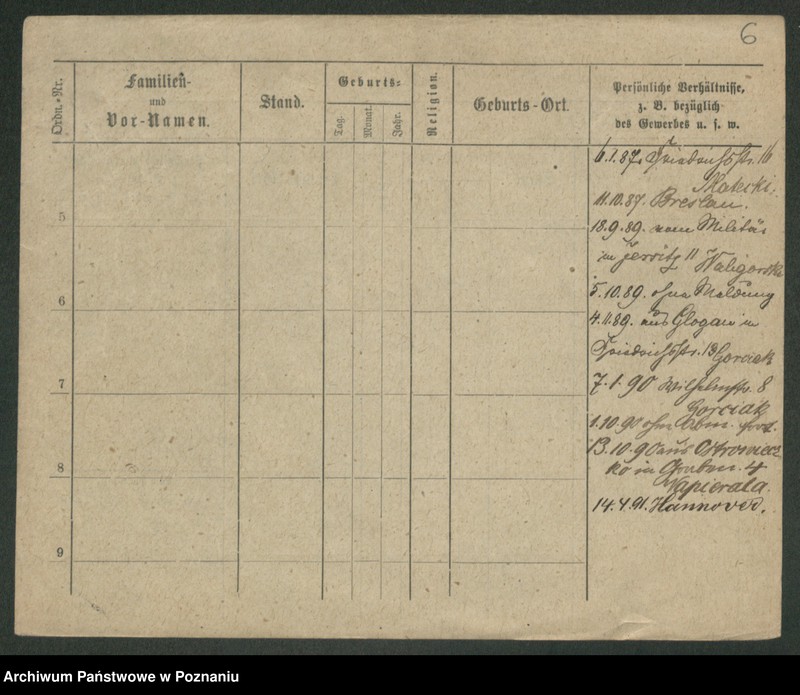 6
Ordn.-Nr.
Familien-
und
Vor-Namen.
Stand.
Geburts-
Tag.
Monat.
Jahr.
Religion.
Geburts-Ort.
Persönliche Verhältnisse,
z. B. bezüglich
des Gewerbes u. s. w.
6.1.87. Friedrichsstr. 16
Matecki.
11.10.87. Breslau.
18.9.89. vom Militär
in Jersitz 11 Waligorski
5.10.89. ohne Meldung
4.11.89. aus Glogau in
Friedrichsstr. 13 Gorciak
7.1.90 Wilhelmstr. 8
Gorciak
1.10.90 ohne Abm. fort.
13.10.90 aus Ostrowiecz
ko in Graben 4
Napierala.
14.4.91. Hannover.
5
6
7
8
9
Archiwum Państwowe w Poznaniu